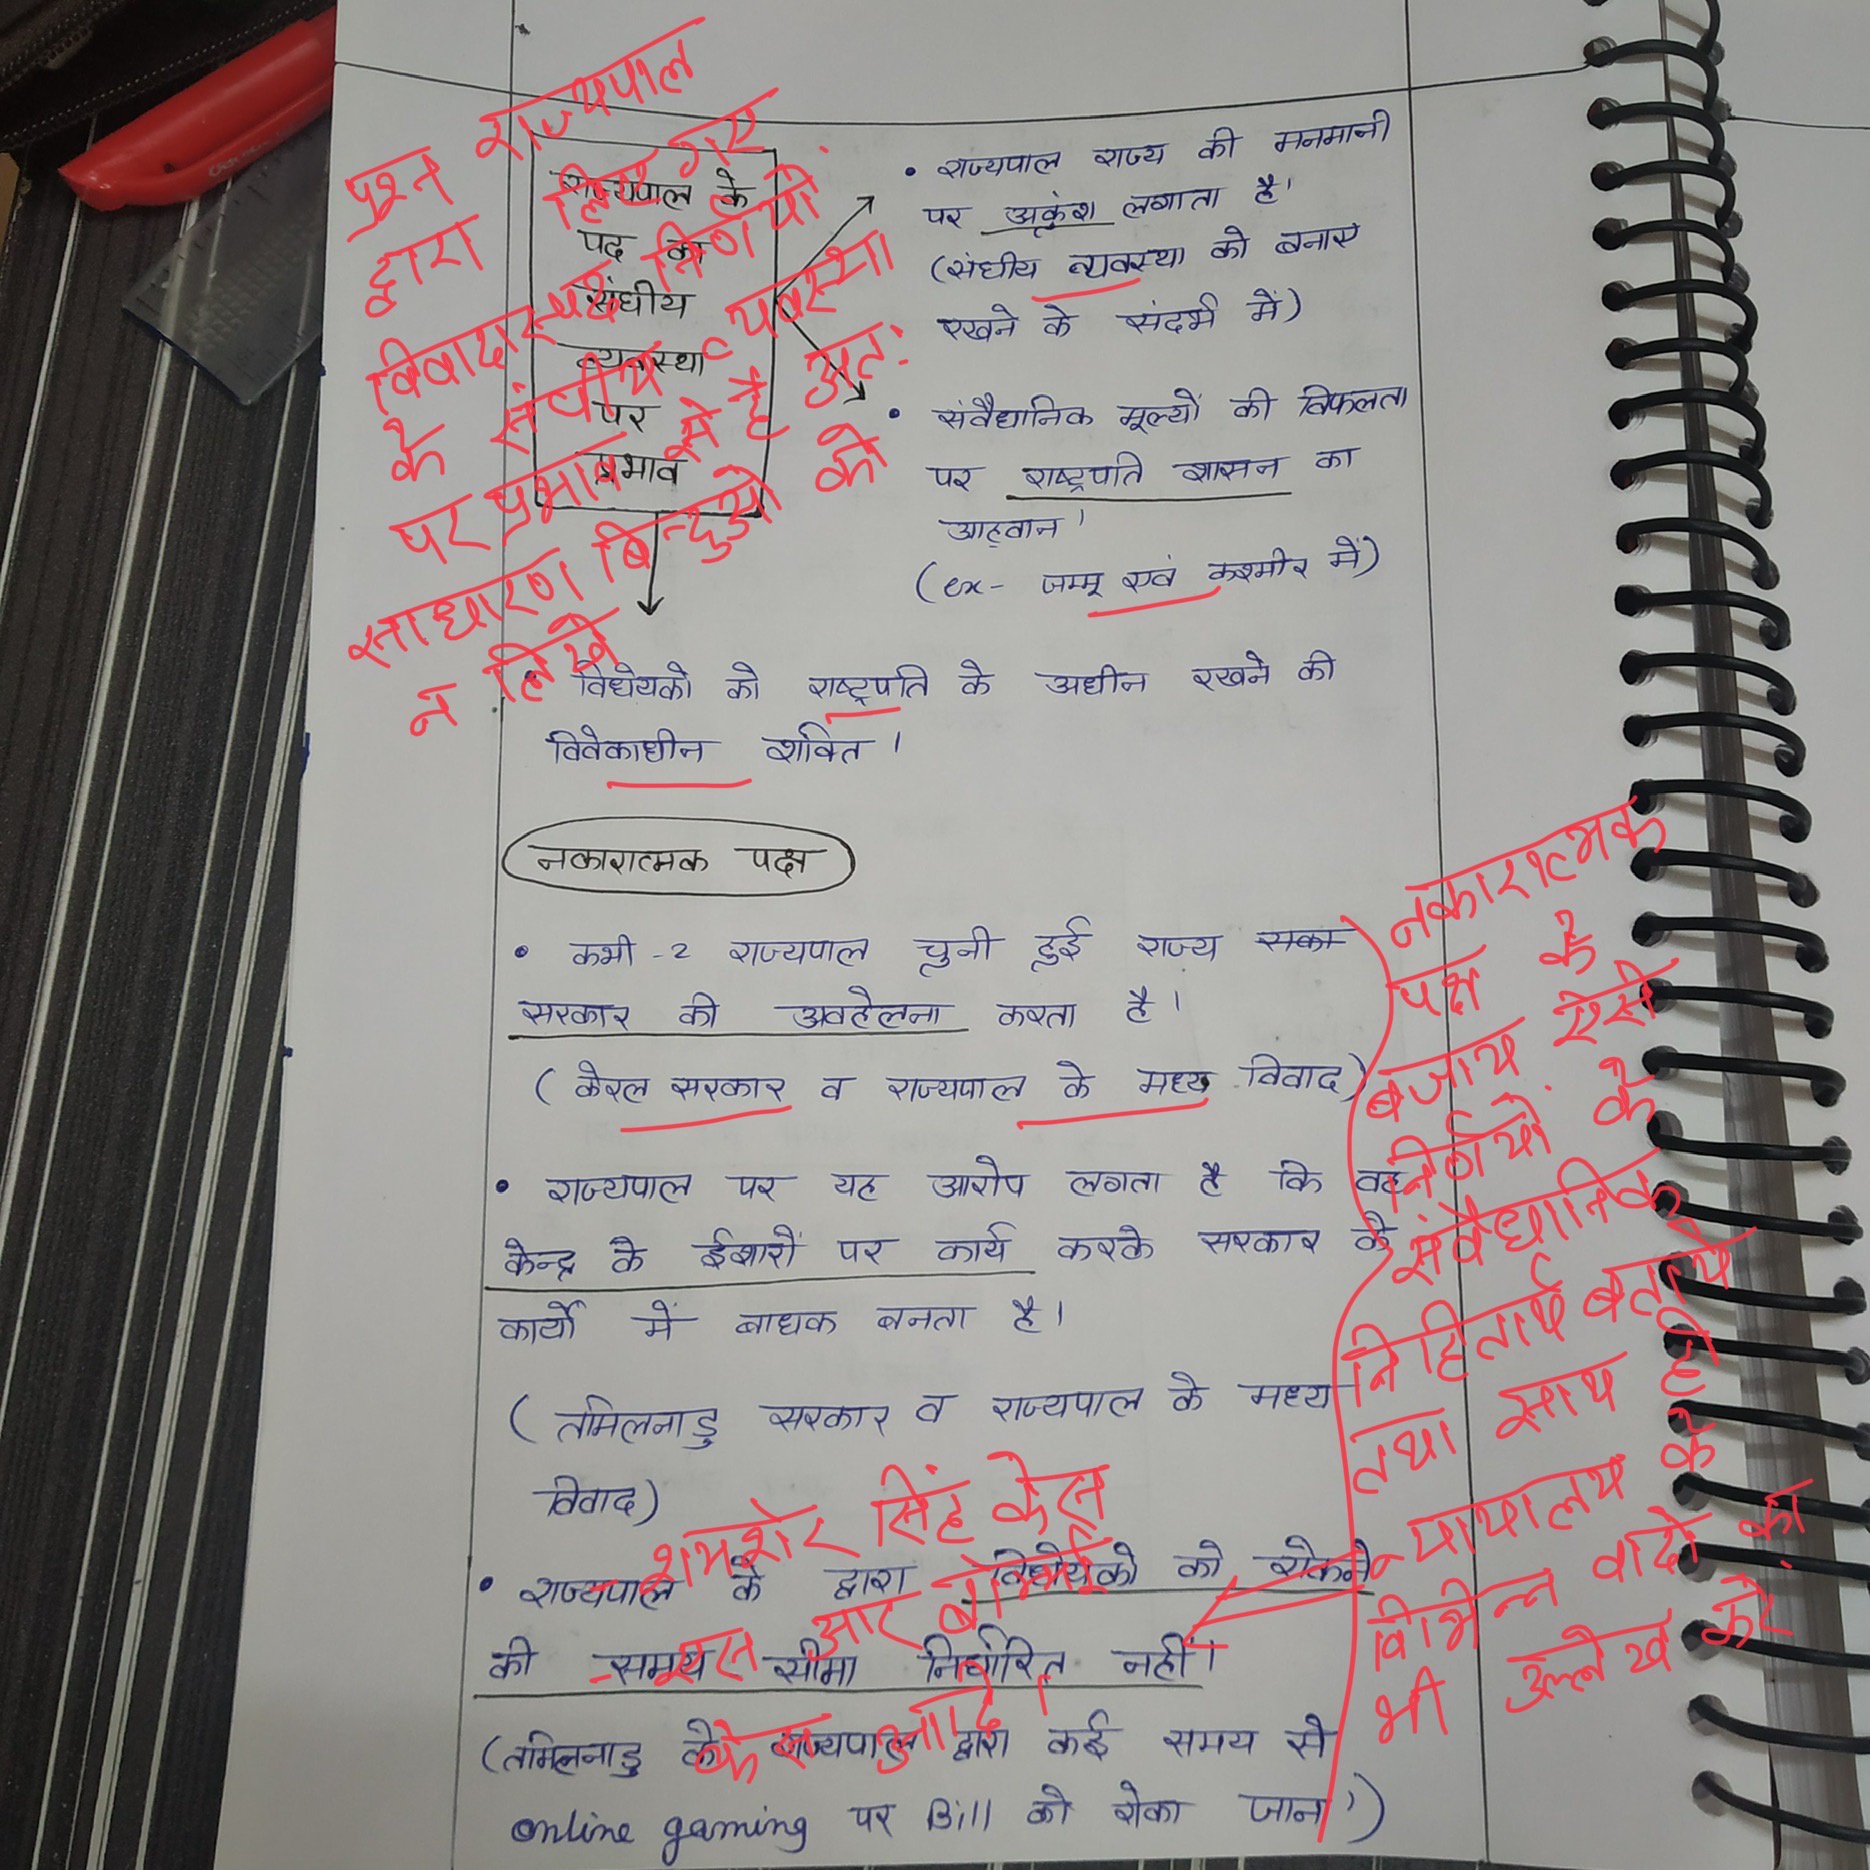 राज्यपाल के
पद का
संघीय
व्यवस्था
पर
प्रभाव
• राज्यपाल राज्य की मनमानी
पर अकुंश लगाता है।
(संघीय व्यवस्था को बनाए
रखने के संदर्भ में)
• संवैधानिक मूल्यों की विफलता
पर राष्ट्रपति शासन का
आह्वान।
(ex- जम्मू एवं कश्मीर में)
• विधेयको को राष्ट्रपति के अधीन रखने की
विवेकाधीन शक्ति।
प्रश्न राज्यपाल
द्वारा लिए गए
विवादास्पद निर्णयों
के संघीय व्यवस्था
पर प्रभाव से है अतः
साधारण बिन्दुओं को
न लिखें
नकारात्मक पक्ष
• कभी-2 राज्यपाल चुनी हुई राज्य सका
सरकार की अवहेलना करता है।
(केरल सरकार व राज्यपाल के मध्य विवाद)
• राज्यपाल पर यह आरोप लगता है कि वह
केन्द्र के ईशारों पर कार्य करके सरकार के
कार्यो में बाधक बनता है।
(तमिलनाडु सरकार व राज्यपाल के मध्य
विवाद)
• राज्यपाल के द्वारा विधेयको को रोकने
की समय सीमा निर्धारित नहीं।
(तमिलनाडु के राज्यपाल द्वारा कई समय से
online gaming पर Bill को रोका जाना।)
नकारात्मक
पक्ष के
बजाय ऐसे
निर्णयों के
संवैधानिक
निहितार्थ बताये
तथा साथ ही
न्यायालय के
विभिन्न वादों का
भी उल्लेख करें.
- शमशेर सिंह केस
- एस आर बोम्मई
केस आदि।